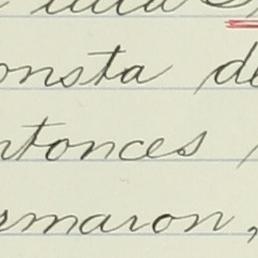 onsta de
ntonces
rmaron,